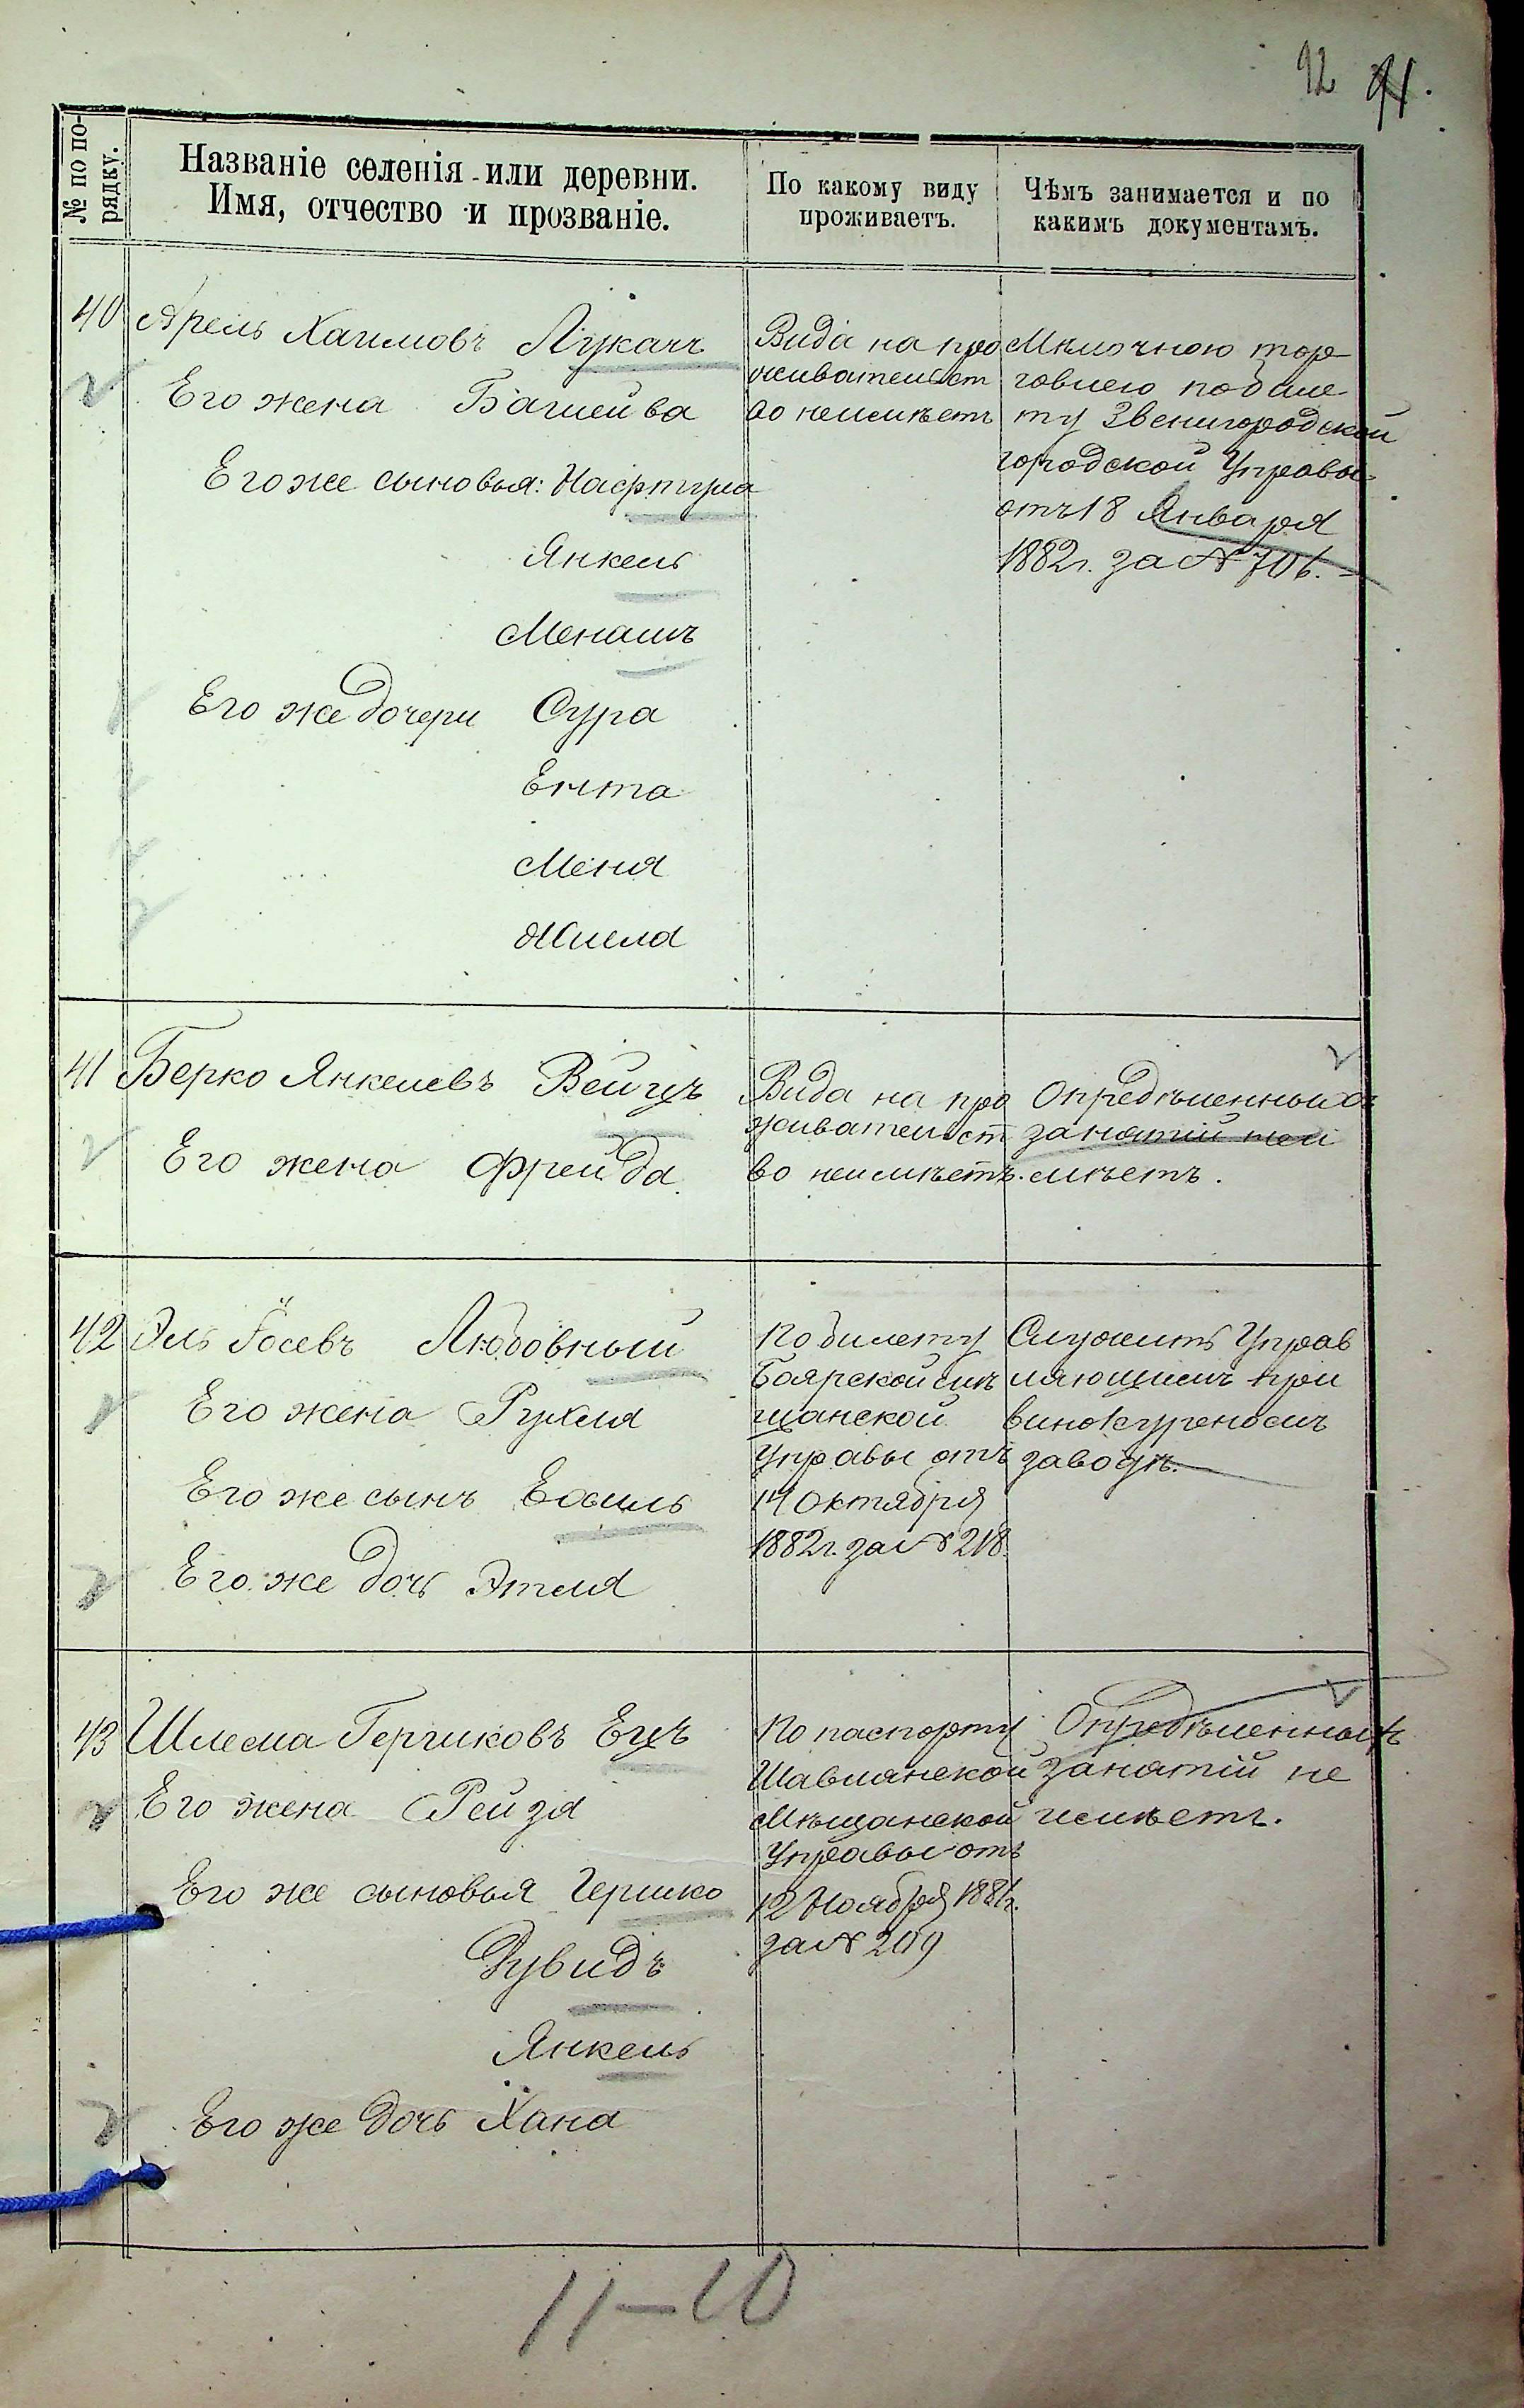 92 91.
№ по по-
рядку.
Названіе селенія или деревни.
Имя, отчество и прозваніе.
По какому виду
проживаетъ.
Чѣмъ занимается и по
какимъ документамъ.
40 Арель Хаимовъ Лукачъ
Его жена Башейва
Его же сыновья: Нафтула
Янкель
Менашъ
Его же дочери Сура
Ента
Меня
Жиеля
Вида на про
живательст
во неимѣетъ
Мѣлочною тор
говлею по биле
ту Звенигородской
городской Управы
отъ 18 Января
1882г. за № 706.
41 Берко Янкелевъ Вейцъ
Его жена Фрейда.
Вида на про
живательст
во неимѣетъ.
Опредѣленныхъ
занятій неи
мѣетъ.
42 Эль Іосевъ Любовный
Его жена Рухля
Его же сынъ Евсель
Его же дочь Этля
По билету
Боярской мѣ
щанской
Управы отъ
14 Октября
1882г. за № 218.
Служитъ Управ
ляющимъ при
винокуреномъ
заводѣ.
43 Шлема Гершковъ Ецъ
Его жена Рейзя
Его же сыновья Гершко
Дувидъ
Янкель
Его же дочь Хана
По паспорту
Шавлянской
Мѣщанской
Управы отъ
12 Ноября 1881г.
за № 209
Опредѣленныхъ
занятій не
имѣетъ.
11-10